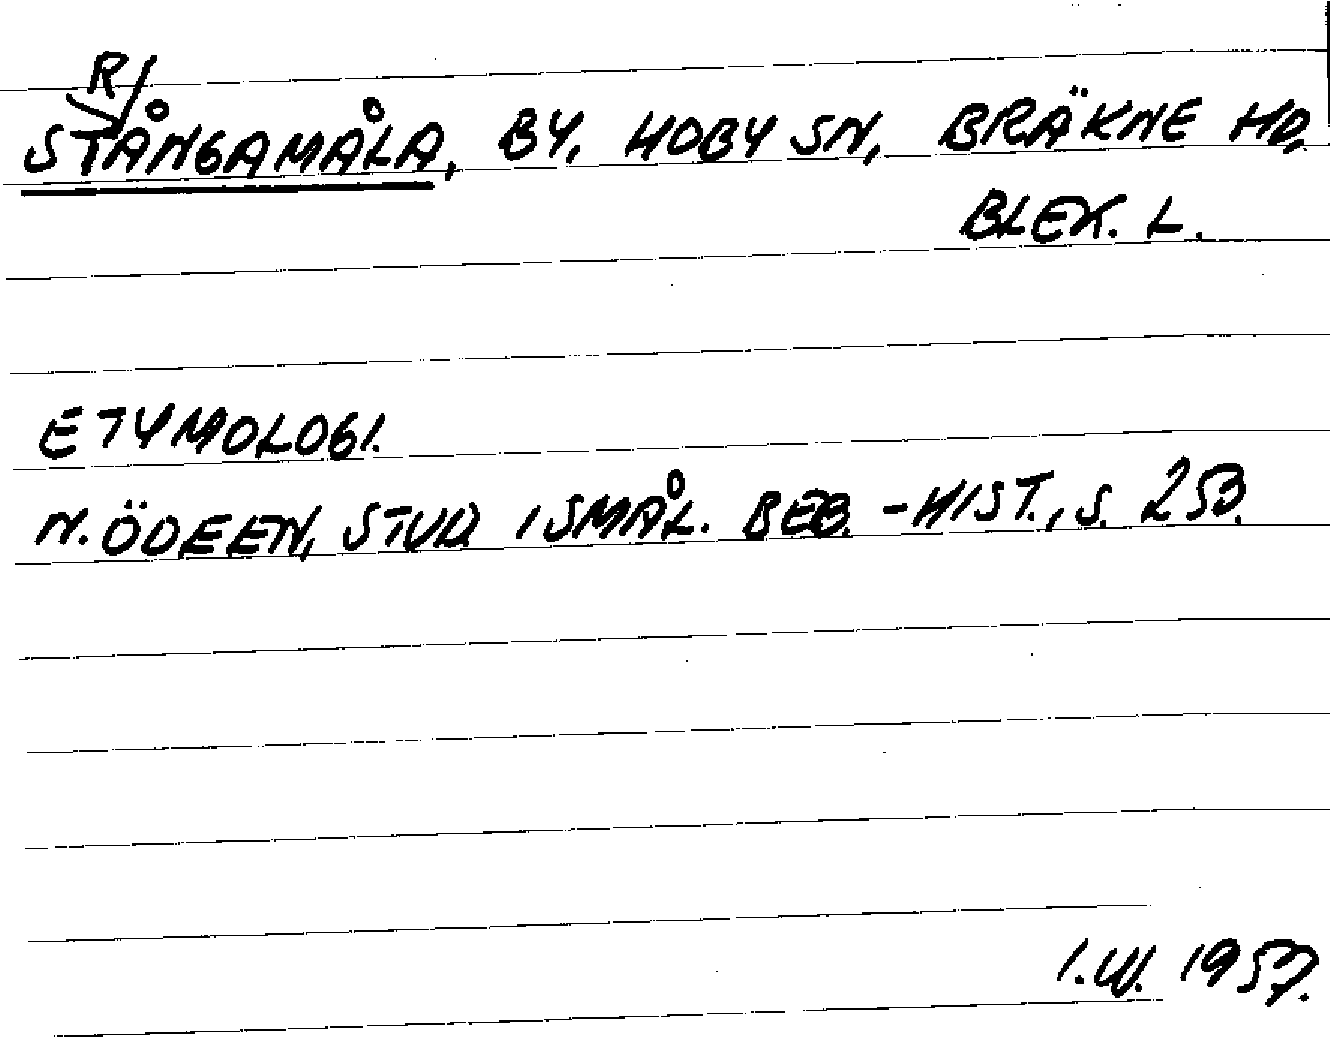 R/
STÅNGAMÅLA, BY, HOBY SN, BRÄKNE HD,
BLEK. L.
ETYMOLOGI.
N. ÖDEEN, STUD. I SMÅL. BEB.-HIST., S. 253.
I.W. 1957.